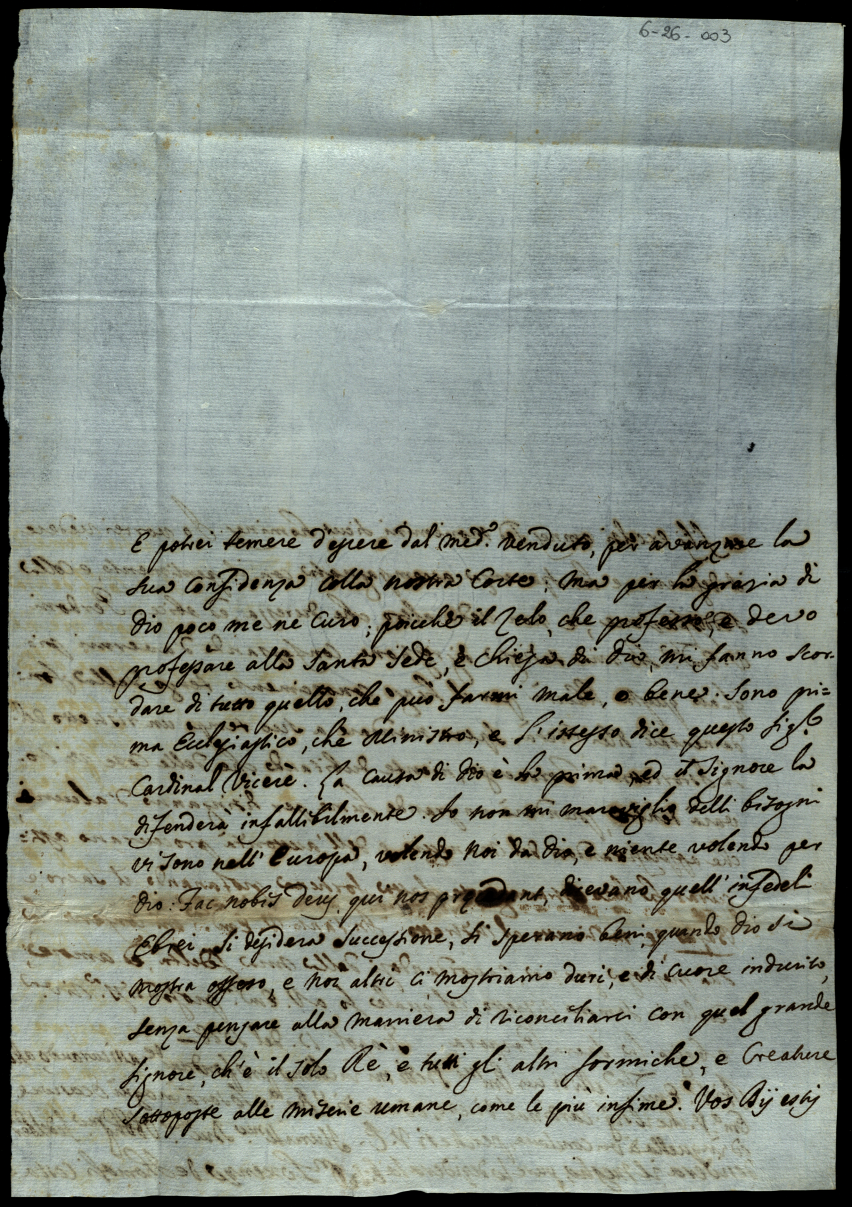 6-26-003
E potrei temere d'essere dal med.º venduto, per avanzare la
sua confidenza colla nostra Corte; ma per la grazia di
Dio poco me ne curo; poiche il zelo, che professo, e devo
professare alla Santa Sede, e Chiesa di Dio, mi fanno scor-
dare di tutto quello, che può farmi male, o bene. Sono pri=
ma Ecclesiastico, che Ministro, e l'istesso dice questo Sig.r
Cardinal Vicere. La causa di Dio è la prima, ed il Signore la
difenderà infallibilmente. Io non mi maraviglio delli bisogni
vi sono nell'Europa, volendo noi da Dio, e niente volendo per
Dio: Fac nobis Deus, qui nos precedant, dicevano quell'infedeli
Ebrei. Si desidera successione, si sperano beni, quando Dio si
mostra offeso, e noi altri ci mostriamo duri, e di cuore indurito,
senza pensare alla maniera di riconciliarci con quel grande
Signore, ch'è il solo Rè, e tutti gli altri formiche, e Creature
sottoposte alle miserie umane, come le più infime. Vos Dij estis